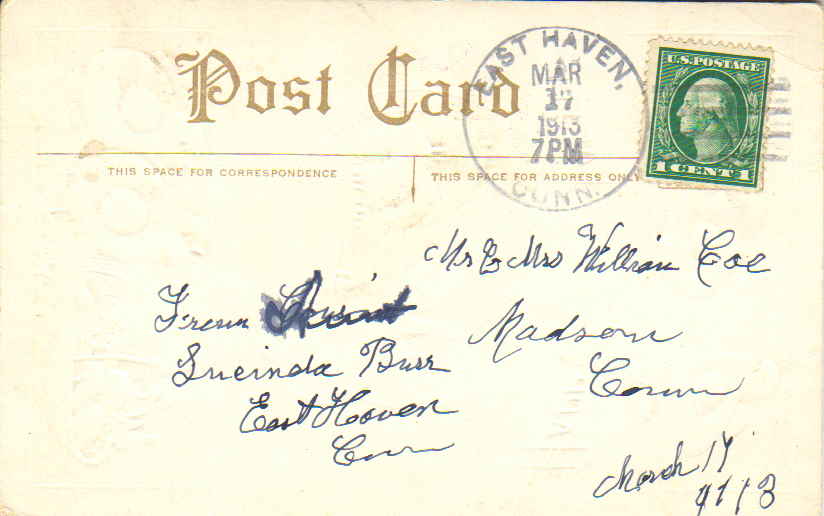 Post Card
EAST HAVEN,
MAR
17
1913
7PM
CONN.
U.S. POSTAGE
1 CENT 1
THIS SPACE FOR CORRESPONDENCE
THIS SPACE FOR ADDRESS ONLY
Mr & Mrs William Coe
Madson
Conn
From
Lucinda Burr
East Haven
Conn
March 17
1913